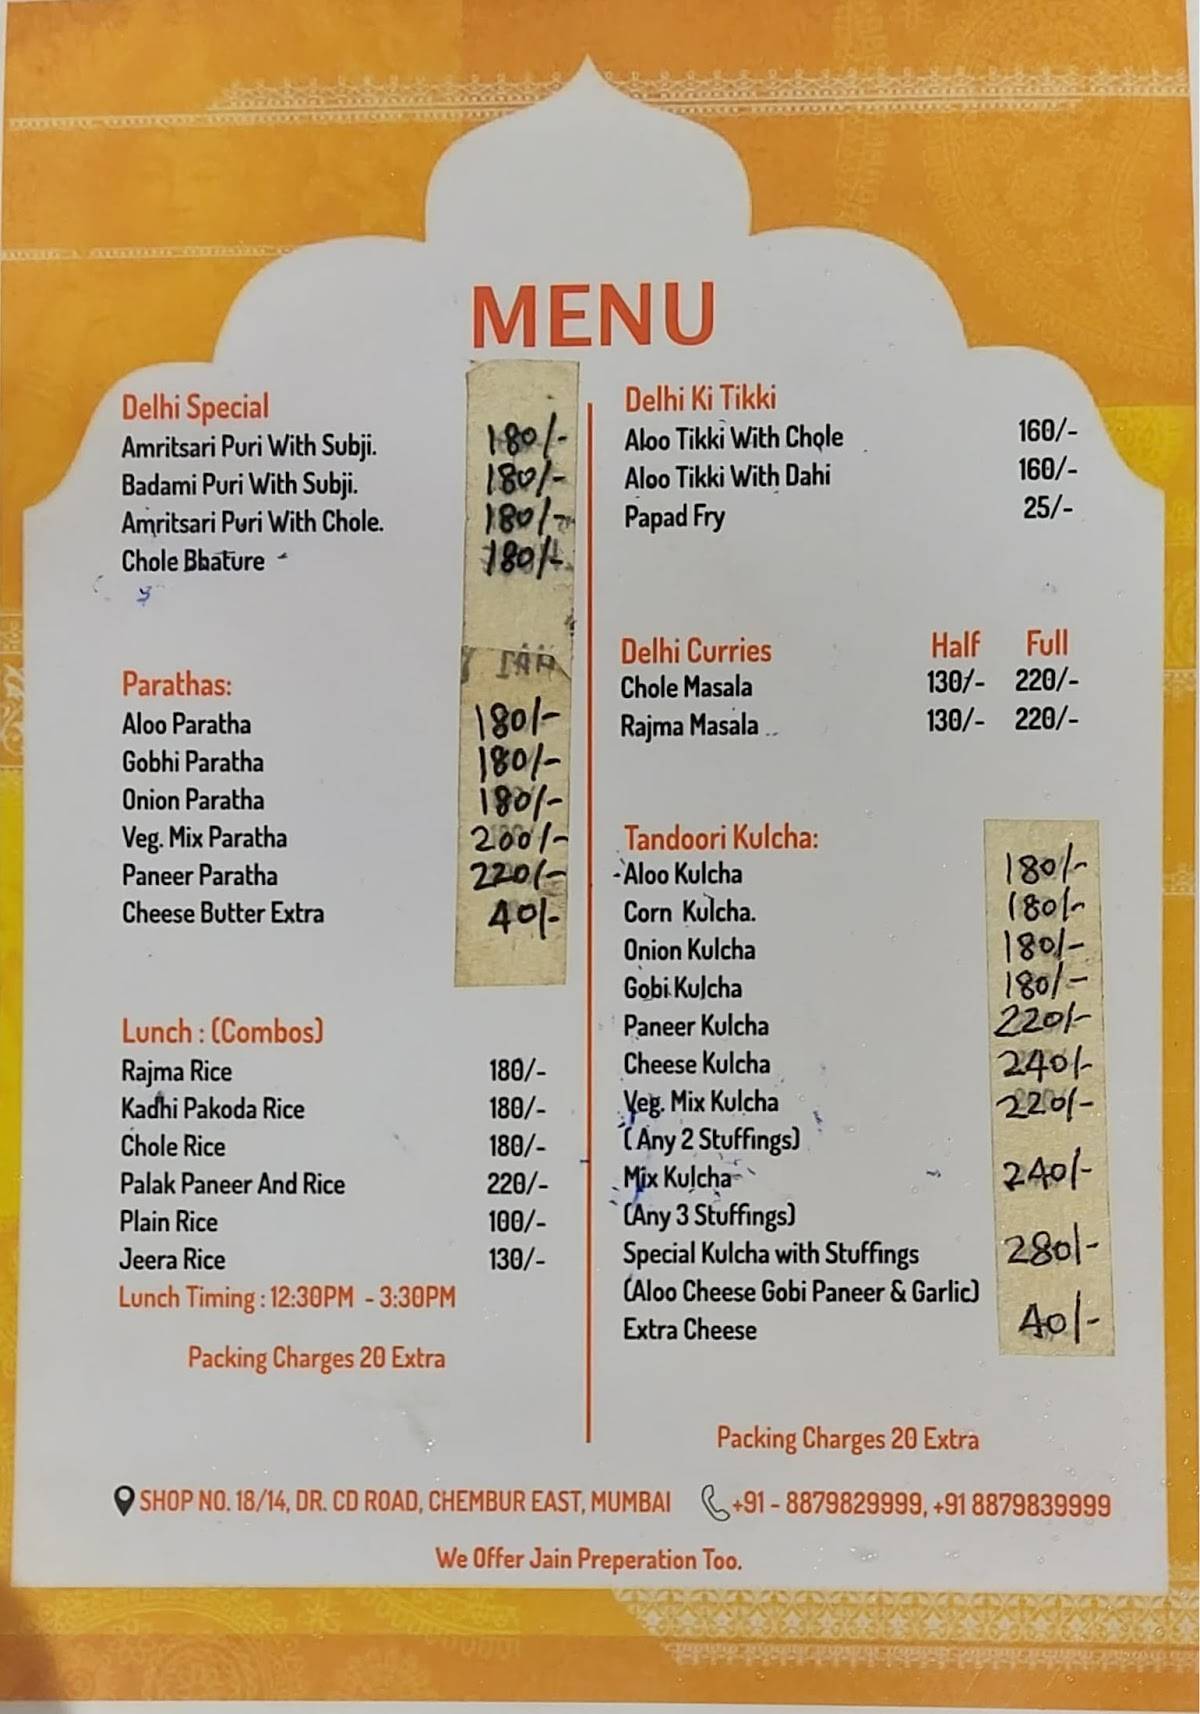 MENU
Delhi Special
Amritsari Puri With Subji. 180/-
Badami Puri With Subji. 180/-
Amritsari Puri With Chole. 180/-
Chole Bhature 180/-
Parathas:
Aloo Paratha 180/-
Gobhi Paratha 180/-
Onion Paratha 180/-
Veg. Mix Paratha 200/-
Paneer Paratha 220/-
Cheese Butter Extra 40/-
Lunch : (Combos)
Rajma Rice 180/-
Kadhi Pakoda Rice 180/-
Chole Rice 180/-
Palak Paneer And Rice 220/-
Plain Rice 100/-
Jeera Rice 130/-
Lunch Timing : 12:30PM - 3:30PM
Packing Charges 20 Extra
Delhi Ki Tikki
Aloo Tikki With Chole 160/-
Aloo Tikki With Dahi 160/-
Papad Fry 25/-
Delhi Curries Half Full
Chole Masala 130/- 220/-
Rajma Masala 130/- 220/-
Tandoori Kulcha:
Aloo Kulcha 180/-
Corn Kulcha. 180/-
Onion Kulcha 180/-
Gobi Kulcha 180/-
Paneer Kulcha 220/-
Cheese Kulcha 240/-
Veg. Mix Kulcha 220/-
(Any 2 Stuffings)
Mix Kulcha 240/-
(Any 3 Stuffings)
Special Kulcha with Stuffings 280/-
(Aloo Cheese Gobi Paneer & Garlic)
Extra Cheese 40/-
Packing Charges 20 Extra
SHOP NO. 18/14, DR. CD ROAD, CHEMBUR EAST, MUMBAI +91 - 8879829999, +91 8879839999
We Offer Jain Preperation Too.